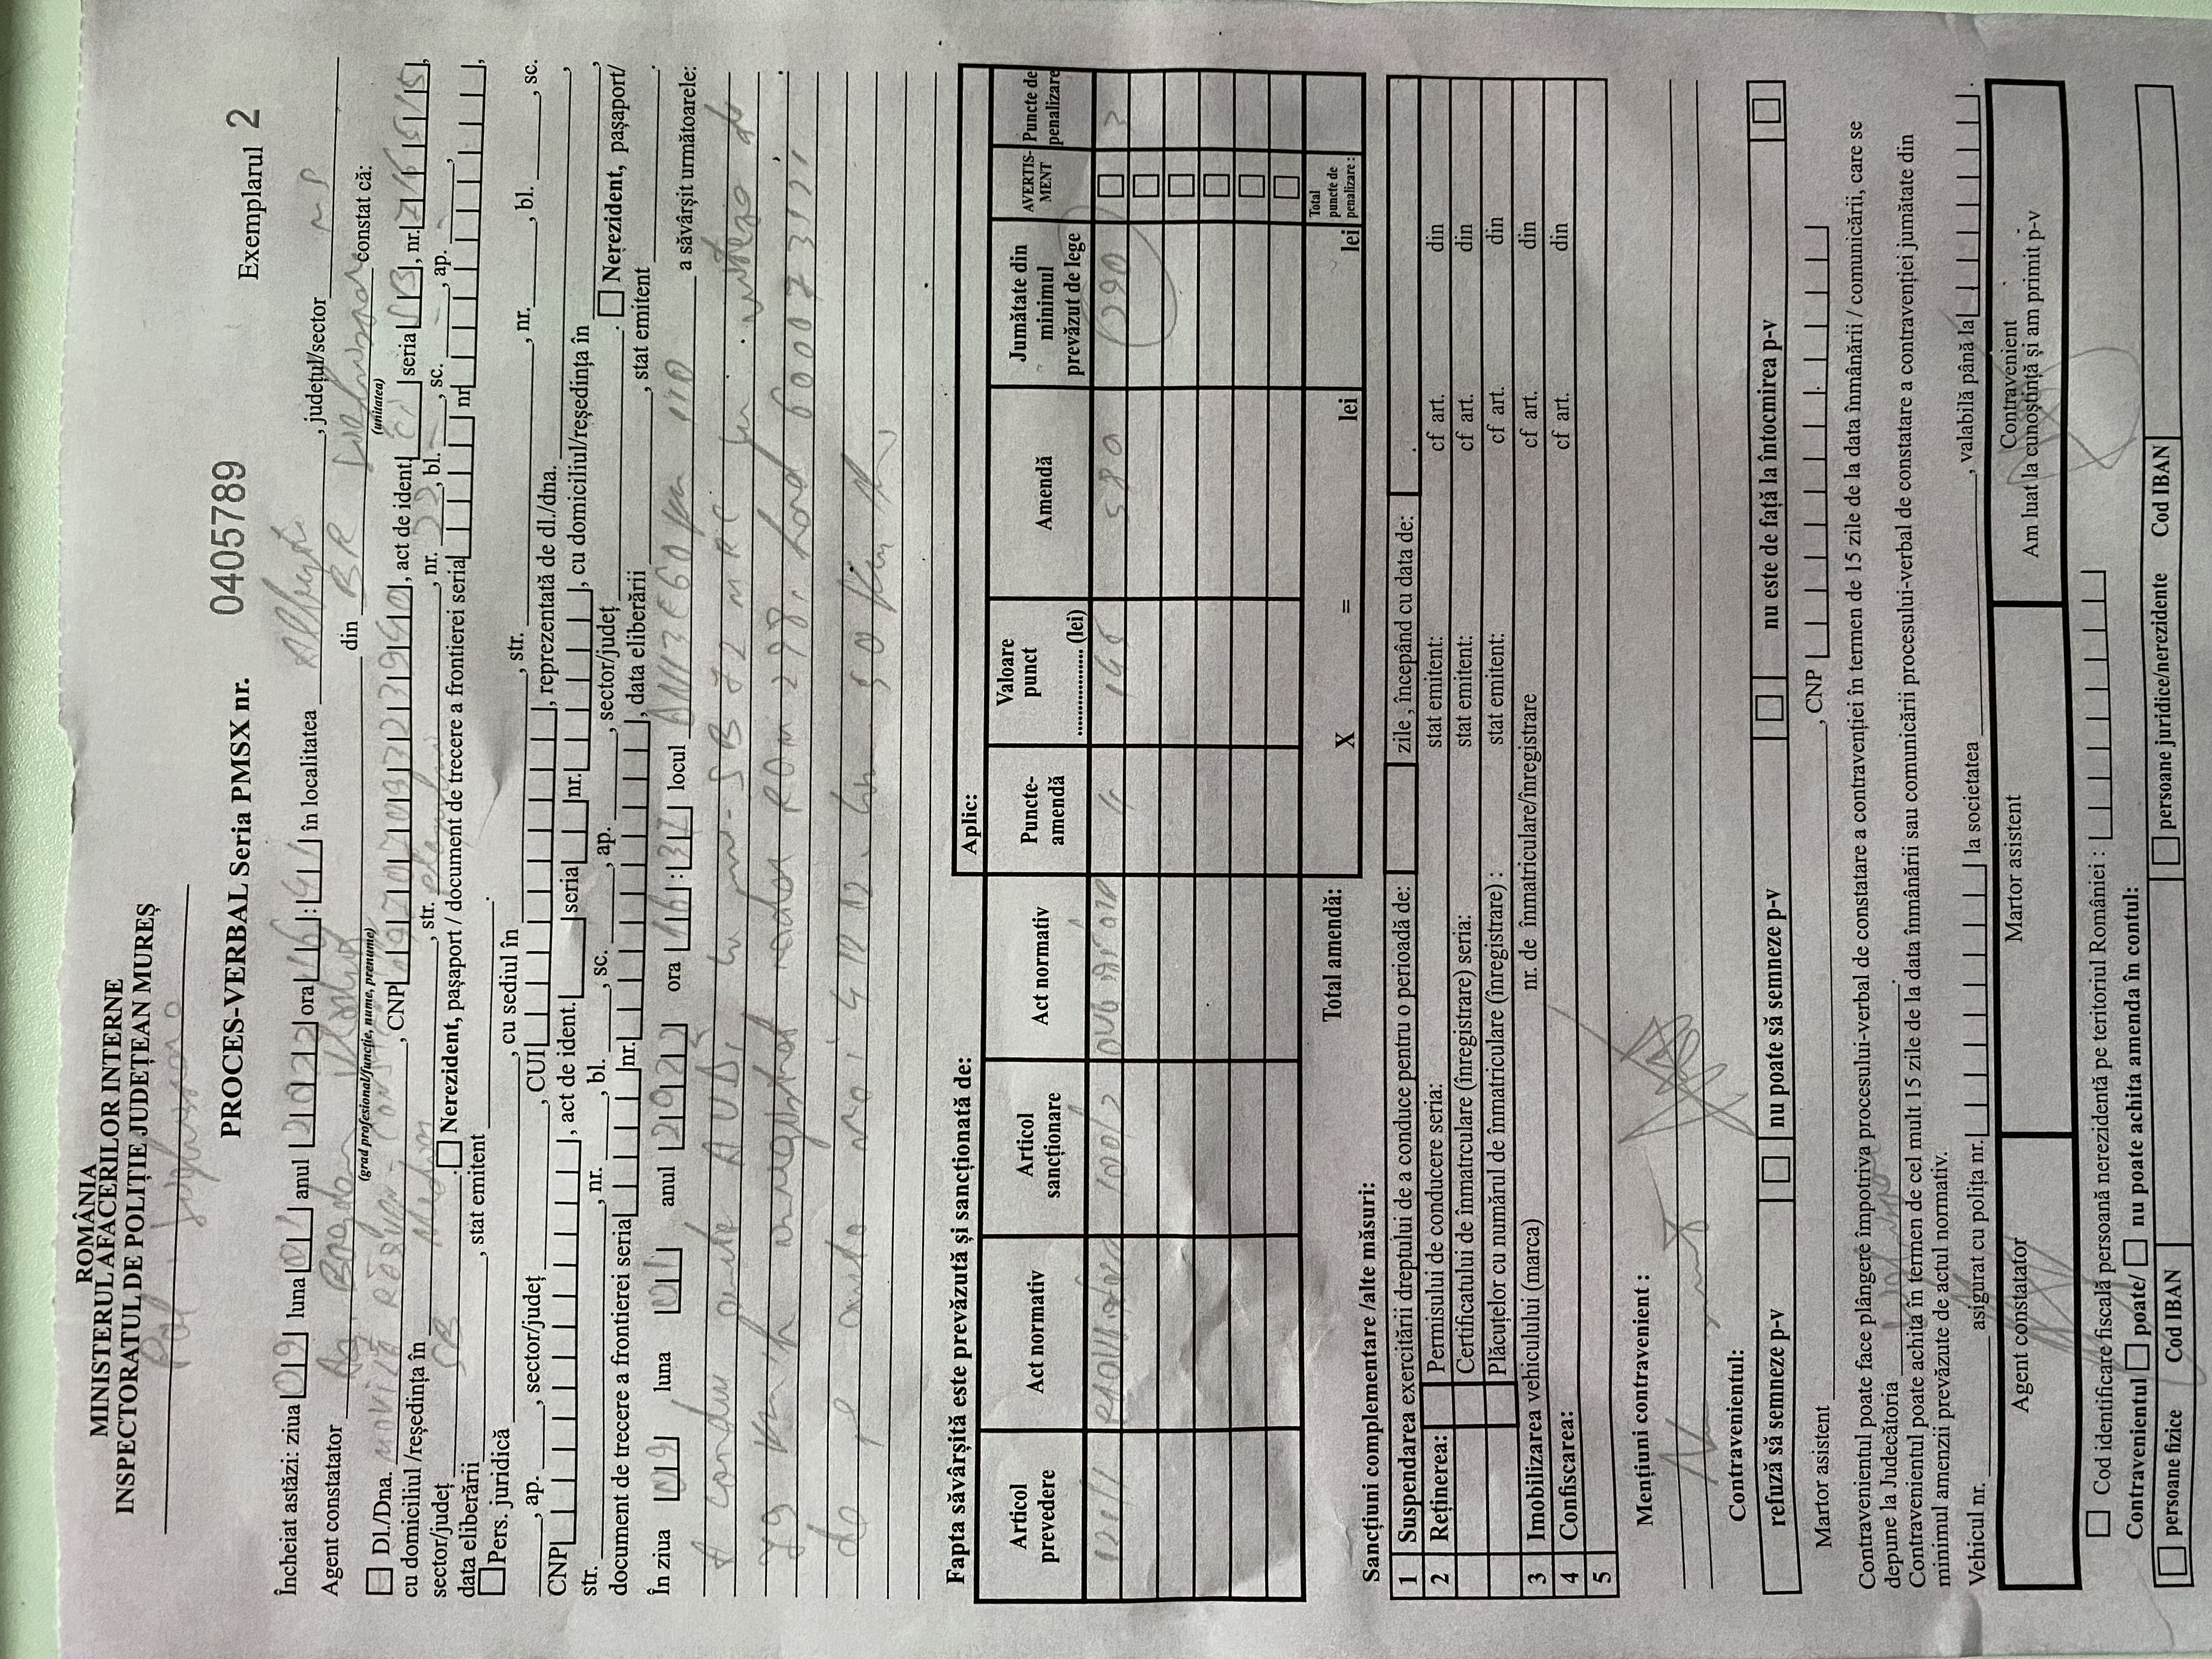 ROMÂNIA
MINISTERUL AFACERILOR INTERNE
INSPECTORATUL DE POLIȚIE JUDEȚEAN MUREȘ
Pol
PROCES-VERBAL Seria PMSX nr. 0405789 Exemplarul 2
Încheiat astăzi: ziua 09 luna 01 anul 2022 ora 16:41 în localitatea , județul/sector MS
Agent constatator Ag. Bogdan din BR constat că:
(grad profesional/funcție, nume, prenume) (unitatea)
Dl./Dna. MOVILĂ RĂZVAN - , CNP , act de ident. CI seria SB, nr. ,
cu domiciliul /reședința în Mediaș, str. , nr. , bl. -, sc. -, ap. -,
sector/județ SB. Nerezident, pașaport / document de trecere a frontierei seria nr ,
data eliberării , stat emitent .
Pers. juridică , cu sediul în , str. , nr. , bl. , sc.
, ap. , sector/județ , CUI , reprezentată de dl./dna. ,
CNP , act de ident. seria nr. , cu domiciliul/reședința în ,
str. , nr. , bl. , sc. , ap. , sector/județ . Nerezident, pașaport/
document de trecere a frontierei seria nr. , data eliberării , stat emitent .
În ziua 09 luna 01 anul 2022 ora 16:37 locul DN13 E60 km 110 a săvârșit următoarele:
A condus auto AUDI cu nr. SB 72 MRC cu viteza de
79 km/h înregistrat radar ROM 298,
de pe auto MAI
Fapta săvârșită este prevăzută și sancționată de: Aplic:
Articol prevedere Act normativ Articol sancționare Act normativ Puncte-amendă Valoare punct ................. (lei) Amendă Jumătate din minimul prevăzut de lege AVERTIS-MENT Puncte de penalizare
121/1 100/2 OUG 4 145 580 290 3
Total amendă: X = lei lei Total puncte de penalizare :
Sancțiuni complementare /alte măsuri:
1 Suspendarea exercitării dreptului de a conduce pentru o perioadă de: zile , începând cu data de:
2 Reținerea: Permisului de conducere seria: stat emitent: cf art. din
Certificatului de înmatrculare (înregistrare) seria: stat emitent: cf art. din
Plăcuțelor cu numărul de înmatriculare (înregistrare) : stat emitent: cf art. din
3 Imobilizarea vehiculului (marca) nr. de înmatriculare/înregistrare cf art. din
4 Confiscarea: cf art. din
5
Mențiuni contravenient :
Nu sunt
Contravenientul:
refuză să semneze p-v nu poate să semneze p-v nu este de față la întocmirea p-v
Martor asistent , CNP
Contravenientul poate face plângere împotriva procesului-verbal de constatare a contravenției în termen de 15 zile de la data înmânării / comunicării, care se
depune la Judecătoria .
Contravenientul poate achita în termen de cel mult 15 zile de la data înmânării sau comunicării procesului-verbal de constatare a contravenției jumătate din
minimul amenzii prevăzute de actul normativ.
Vehicul nr. asigurat cu polița nr. la societatea , valabilă până la .
Agent constatator Martor asistent Contravenient
Am luat la cunoștință și am primit p-v
Cod identificare fiscală persoană nerezidentă pe teritoriul României :
Contravenientul poate/ nu poate achita amenda în contul:
persoane fizice Cod IBAN persoane juridice/nerezidente Cod IBAN